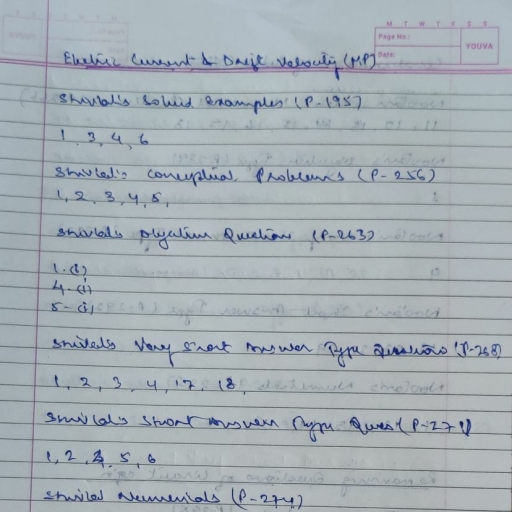 M T W T F S S
Page No.:
Date:
YOUVA
Electric Current & Drift Velocity (MP)
Shivlal's Solved Examples (P-195)
1, 3, 4, 6
Shivlal's Conceptual Problems (P-256)
1, 2, 3, 4, 5,
Shivlal's Objective Question (P-263)
1-(i)
4-(i)
5-(i)
Shivlal's Very Short Answer Type Questions (P-268)
1, 2, 3, 4, 17, 18,
Shivlal's Short Answer Type Ques (P-271)
1, 2, 5, 6
Shivlal Numericals (P-274)